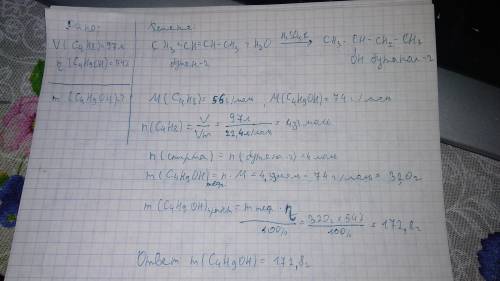 Дано:
Решение
V(C4H8)=97л
η(C4H9OH)=54%
m(C4H9OH)?
CH3-CH=CH-CH3+H2O H2SO4, t
бутен-2
CH3-CH-CH2-CH3
OH бутанол-2
M(C4H8)=56 г/моль, M(C4H9OH)=74 г/моль
n(C4H8)=V/Vm=97л/22,4л/моль=4,33 моль
n(спирта)=n(бутена-2)=4 моль
m(C4H9OH)теор=n·M= 74 г/моль=320г
m(C4H9OH)практ=m теор·η/100%=320г×54%/100%=172,8г
Ответ m(C4H9OH)=172,8г